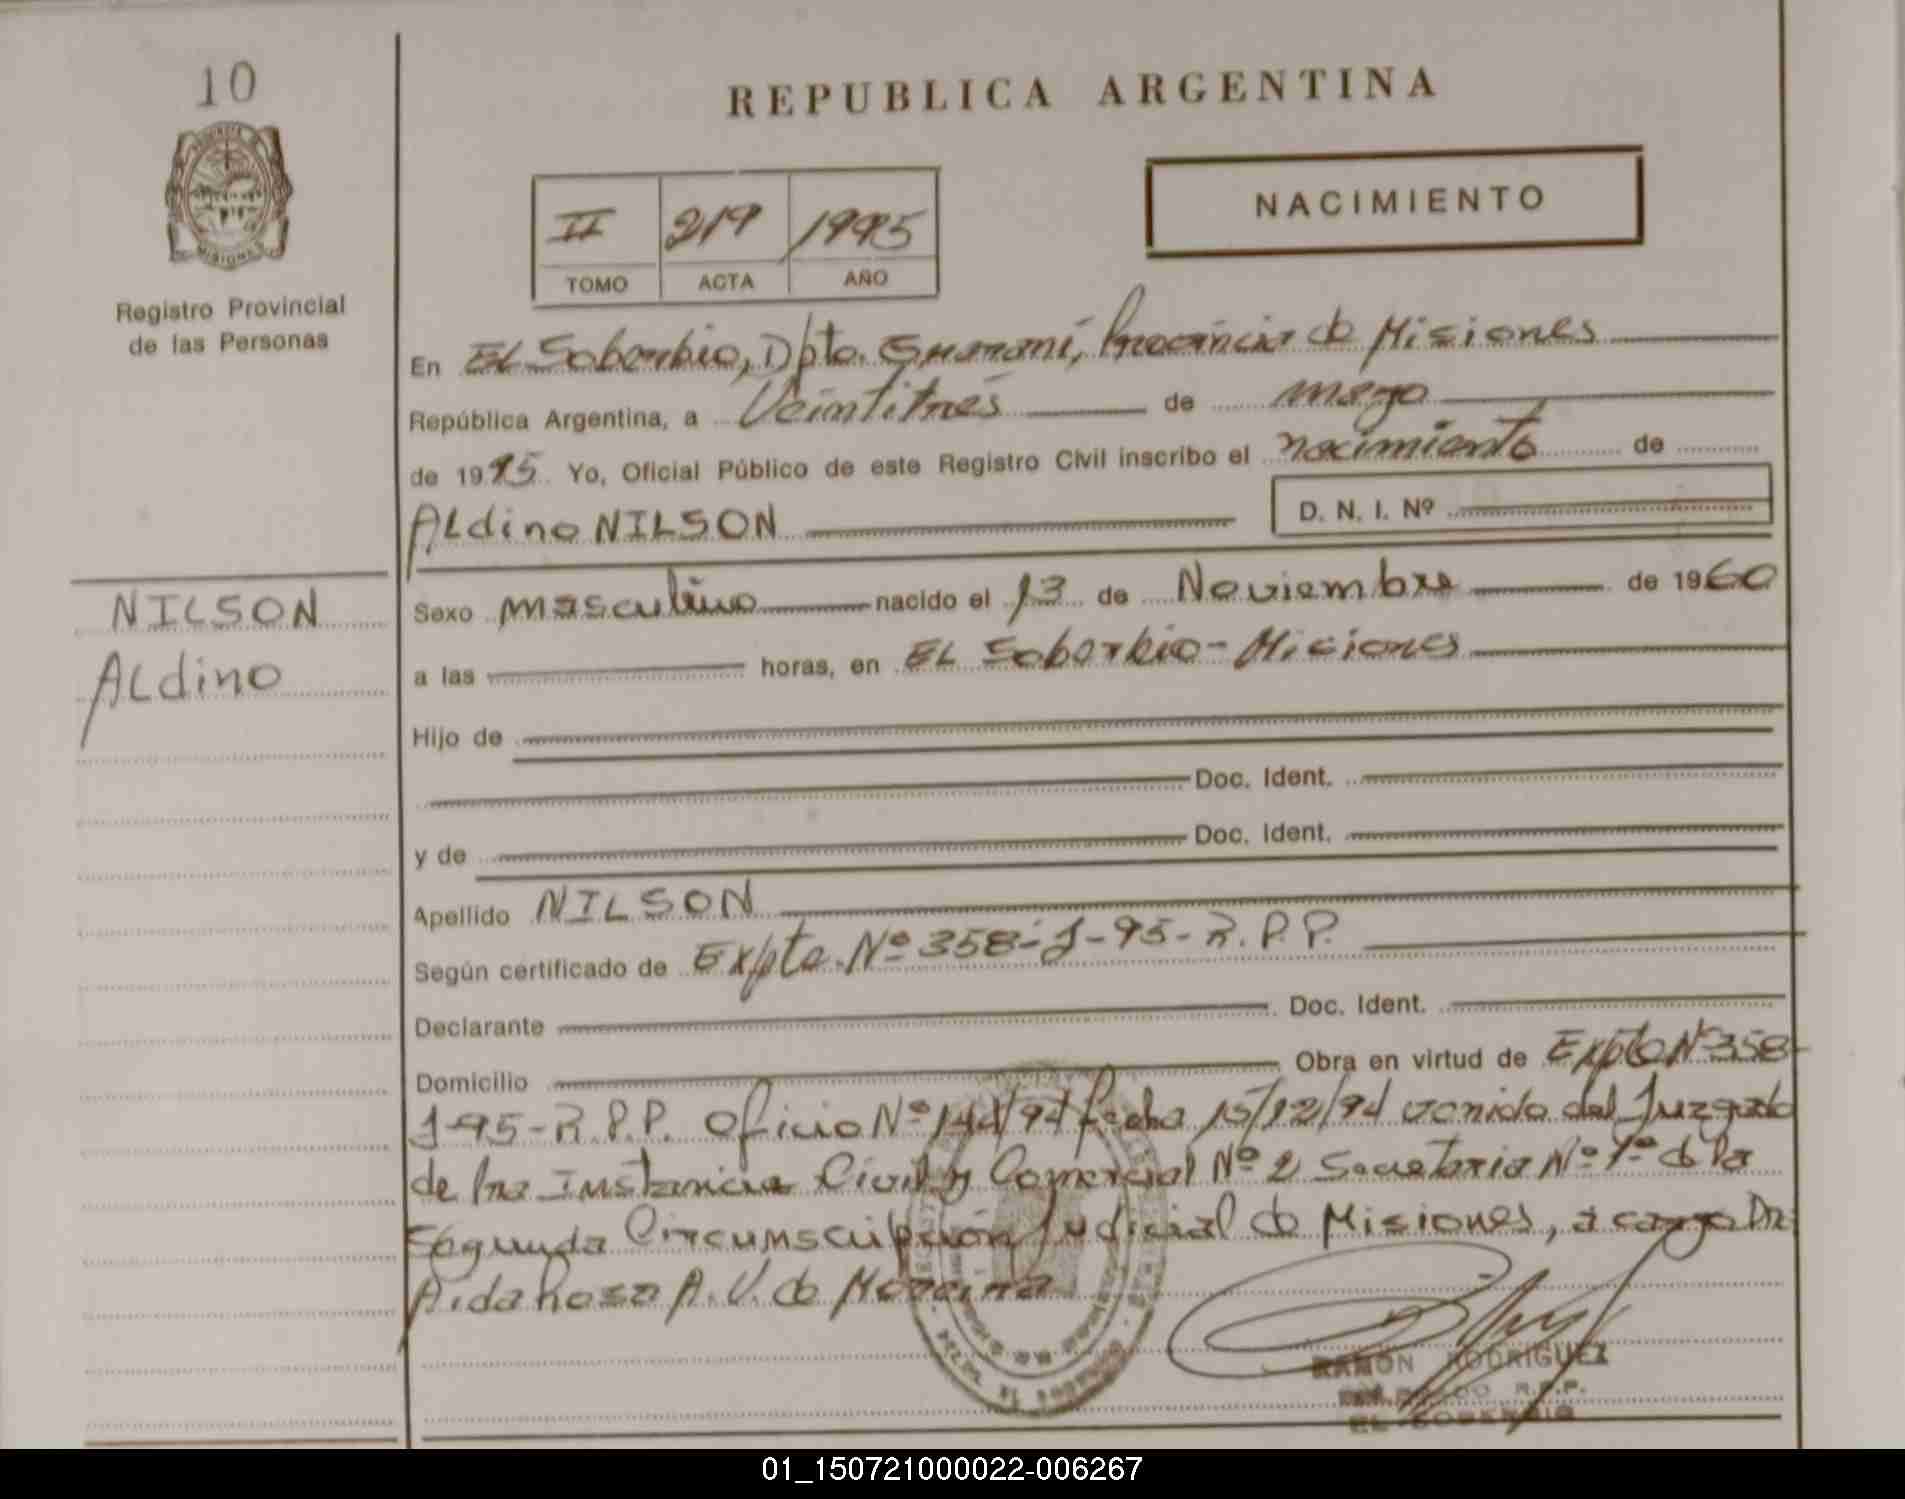 10
Registro Provincial
de las Personas
NILSON
Aldino
REPUBLICA ARGENTINA
NACIMIENTO
II 219 1995
TOMO ACTA AÑO
En El Soberbio, Dpto. Guaraní, Provincia de Misiones
República Argentina, a Veintitrés de mayo
de 1995. Yo, Oficial Público de este Registro Civil inscribo el nacimiento de
Aldino NILSON D. N. I. Nº
Sexo masculino nacido el 13 de Noviembre de 1960
a las horas, en El Soberbio - Misiones
Hijo de
Doc. Ident.
y de Doc. Ident.
Apellido NILSON
Según certificado de Expte. Nº 358-J-95-R.P.P.
Declarante Doc. Ident.
Domicilio Obra en virtud de Expte Nº 358-
J-95-R.P.P. Oficio Nº 144/94 fecha 15/12/94 venido del Juzgado
de 1ra Instancia Civil y Comercial Nº 2 Secretaria Nº 1º de la
Segunda Circumscripción Judicial de Misiones, a cargo Dra:
Aida Rosa A. V. de
RAMÓN RODRIGUEZ
R.P.P.
EL SOBERBIO
01_150721000022-006267